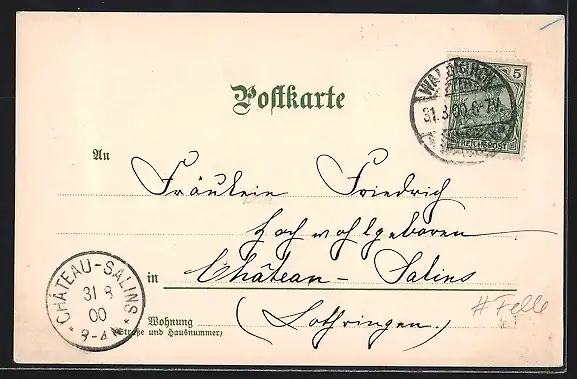 Postkarte
WALDKIRCH
31.8.00.6-7N.
5
REICHSPOST
An
Fräulein Friedrich
Hochwohlgeboren
in Château-Salins
(Lothringen)
Wohnung
(Straße und Hausnummer)
CHÂTEAU-SALINS
31 8
00
9-